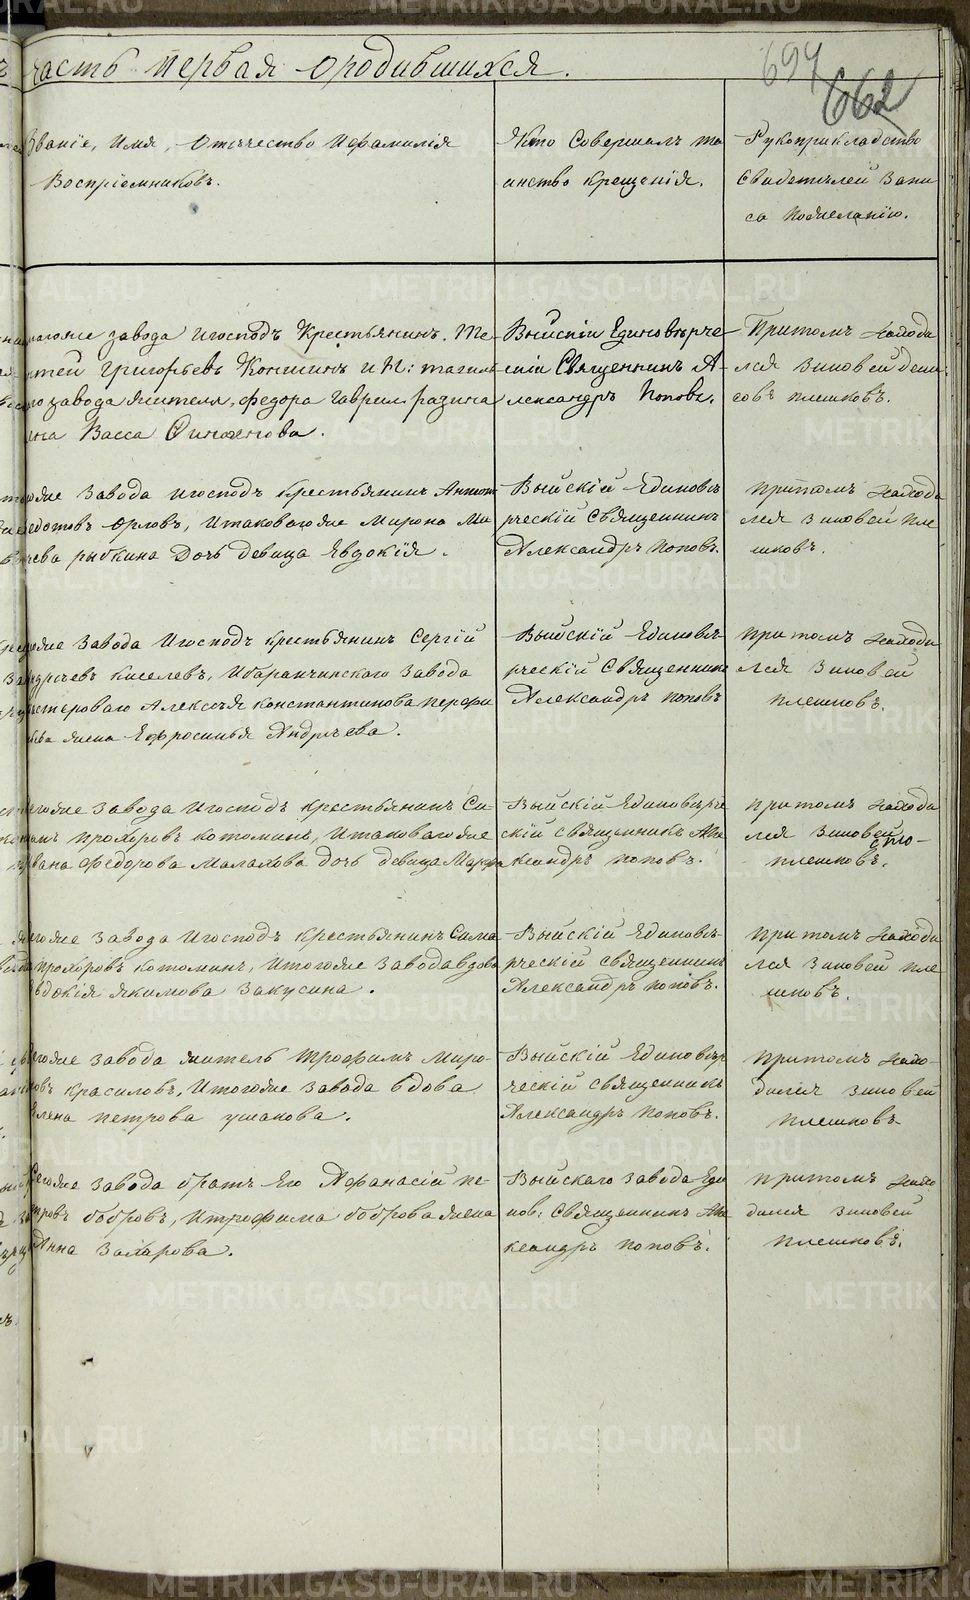 часть первая о родившихся.
694
662
Званіе, Имя, Отчество И фамилія
Воспріемниковъ.
Кто Совершалъ та
инство крещенія.
Рукоприкладство
Свидетелей Запи
са по желанію.
завода И господъ Крестьянинъ. Те
Григорьевъ Коншинъ и Н: тагиль
завода жителя, федора Гаврил. разина
Васса Симаинова.
Выйскій Единоверче
скій Священникъ А
лександръ Поповъ.
При томъ находи
лся Зиновей дени
совъ плешковъ.
Завода И господъ крестьянинъ Антонъ
Федотовъ Орловъ, И таковагоже Мирона Ми
рыбкина Дочь девица Евдокія.
Выйскій Единове
рческій Священникъ
Александръ поповъ.
при томъ находи
лся Зиновей пле
шковъ.
Завода И господъ крестьянинъ Сергій
Андреевъ киселевъ, И баранчинскаго Завода
мастероваго Алексея константинова перфи
жена Ефросинья Андреева.
Выйскій Единове
рческій Священникъ
Александръ поповъ
при томъ находи
лся Зиновей
плешковъ.
Завода И господъ крестьянинъ Си
прохоровъ котоминъ, И таковагоже
Ивана федорова Малахова дочь девица Марфа
Выйскій Единоверче
скій священникъ Але
ксандръ поповъ.
при томъ находи
лся Зиновей
плешковъ.
Завода И господъ крестьянинъ Сила
прохоровъ котоминъ, И тогоже Завода вдова
Евдокія якимова Закусина.
Выйскій Единове
рческій священникъ
Александръ поповъ.
при томъ находи
лся Зиновей пле
шковъ.
Завода житель трофимъ Миро
новъ красиловъ, И тогоже завода вдова
Елена петрова ушакова.
Выйскій Единовер
ческій священникъ
Александръ поповъ.
при томъ нахо
дился Зиновей
плешковъ
Завода братъ Его Афанасій пе
тровъ бобровъ, И трофима боброва жена
Анна Захарова.
Выйскаго завода Еди
нов: Священникъ Але
ксандръ поповъ.
при томъ нахо
дился Зиновей
плешковъ.
METRIKI.GASO-URAL.RU